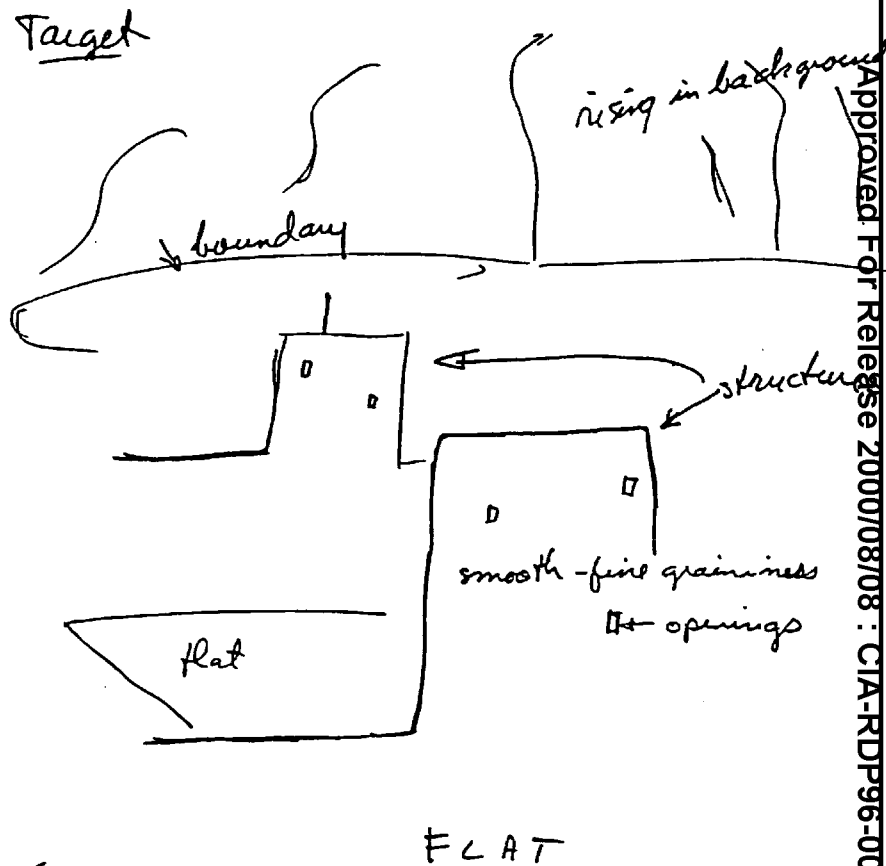 Target
rising in background
boundary
structures
smooth-fine graininess
openings
flat
FLAT
Approved For Release 2000/08/08 : CIA-RDP96-00